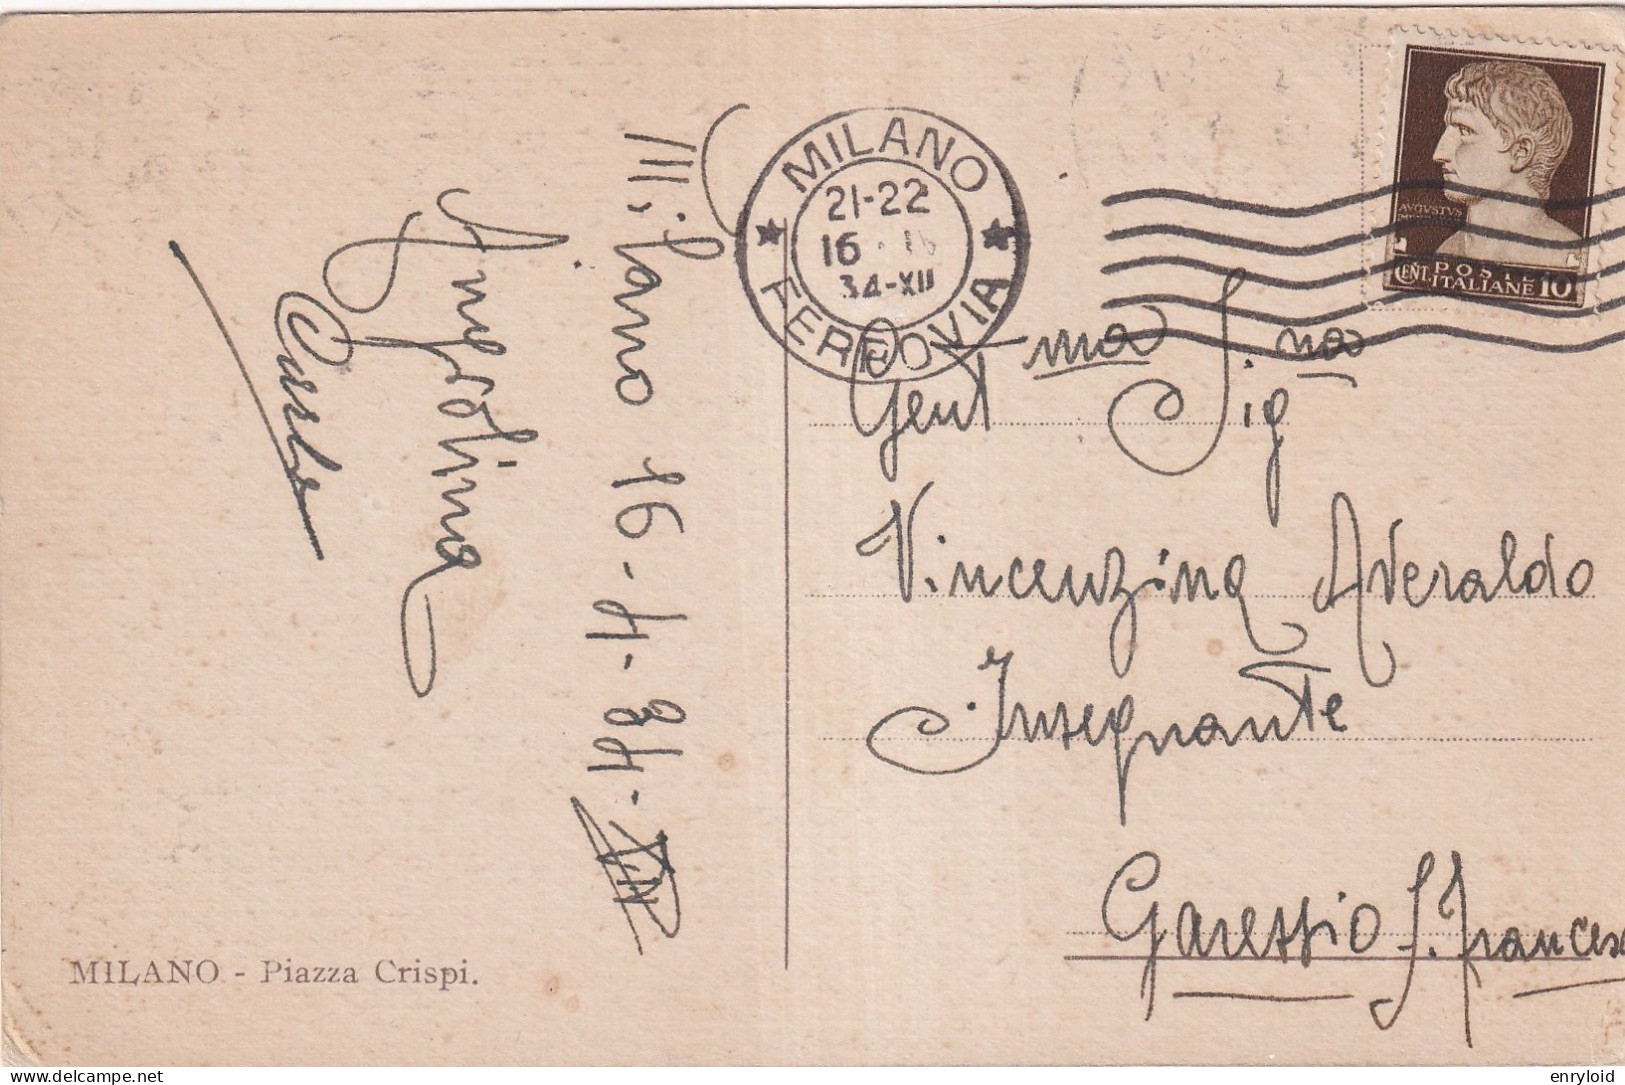 Milano 16-4-34-XII
Angiolina
Carlo
MILANO - Piazza Crispi.
MILANO
21-22
16
34-XII
FERROVIA
AVGVSTVS
POSTE
CENT. ITALIANE 10
Gent ma Sig. na
Vincenzina Averaldo
Insegnante
Garessio S. Francesc
delcampe.net
enryloid